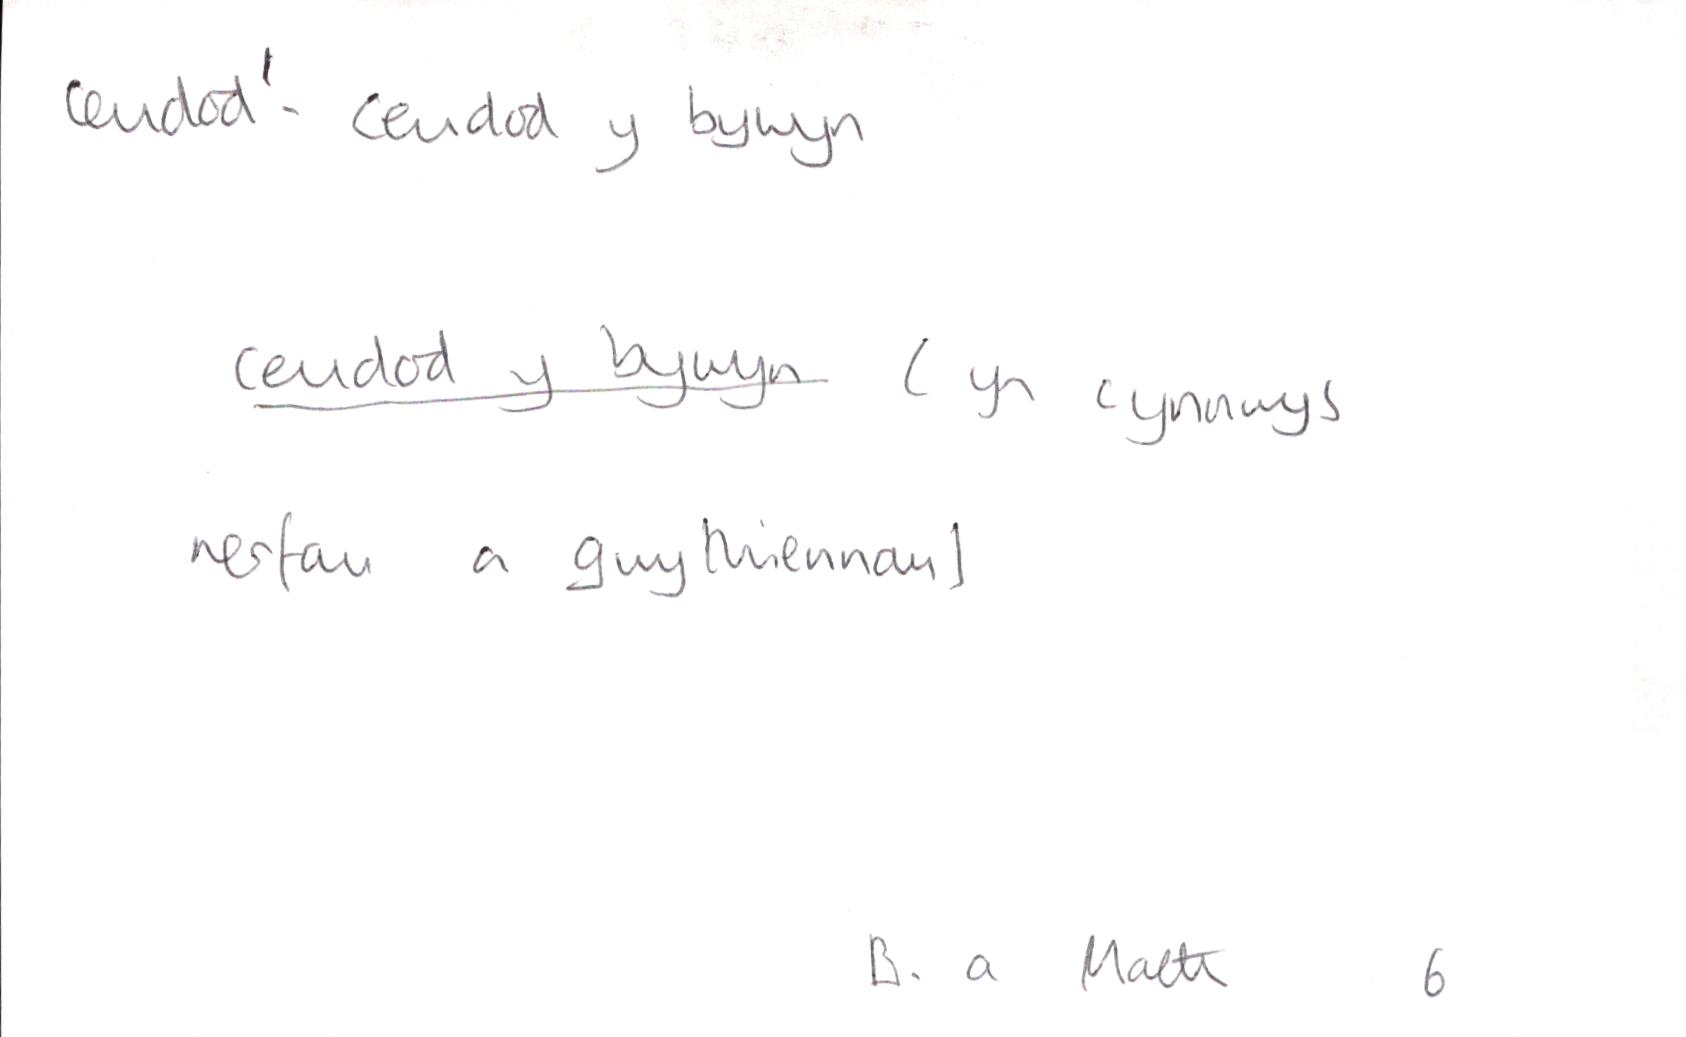 ceudod' - ceudod y bywyn
ceudod y bywyn (yn cynnwys
nerfau a gwythiennau]
B. a Maeth 6